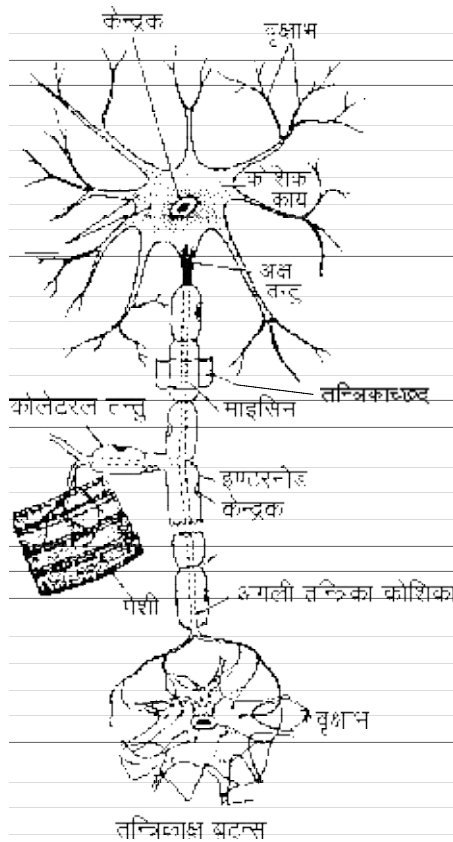 केन्द्रक
वृक्षाभ
कोशिका
काय
अक्ष
तन्तु
तन्त्रिकाच्छद
माइसिन
कोलेटरल तन्तु
इण्टरनोड
केन्द्रक
पेशी
अगली तन्त्रिका कोशिका
वृक्षाभ
तन्त्रिकाक्ष बटन्स